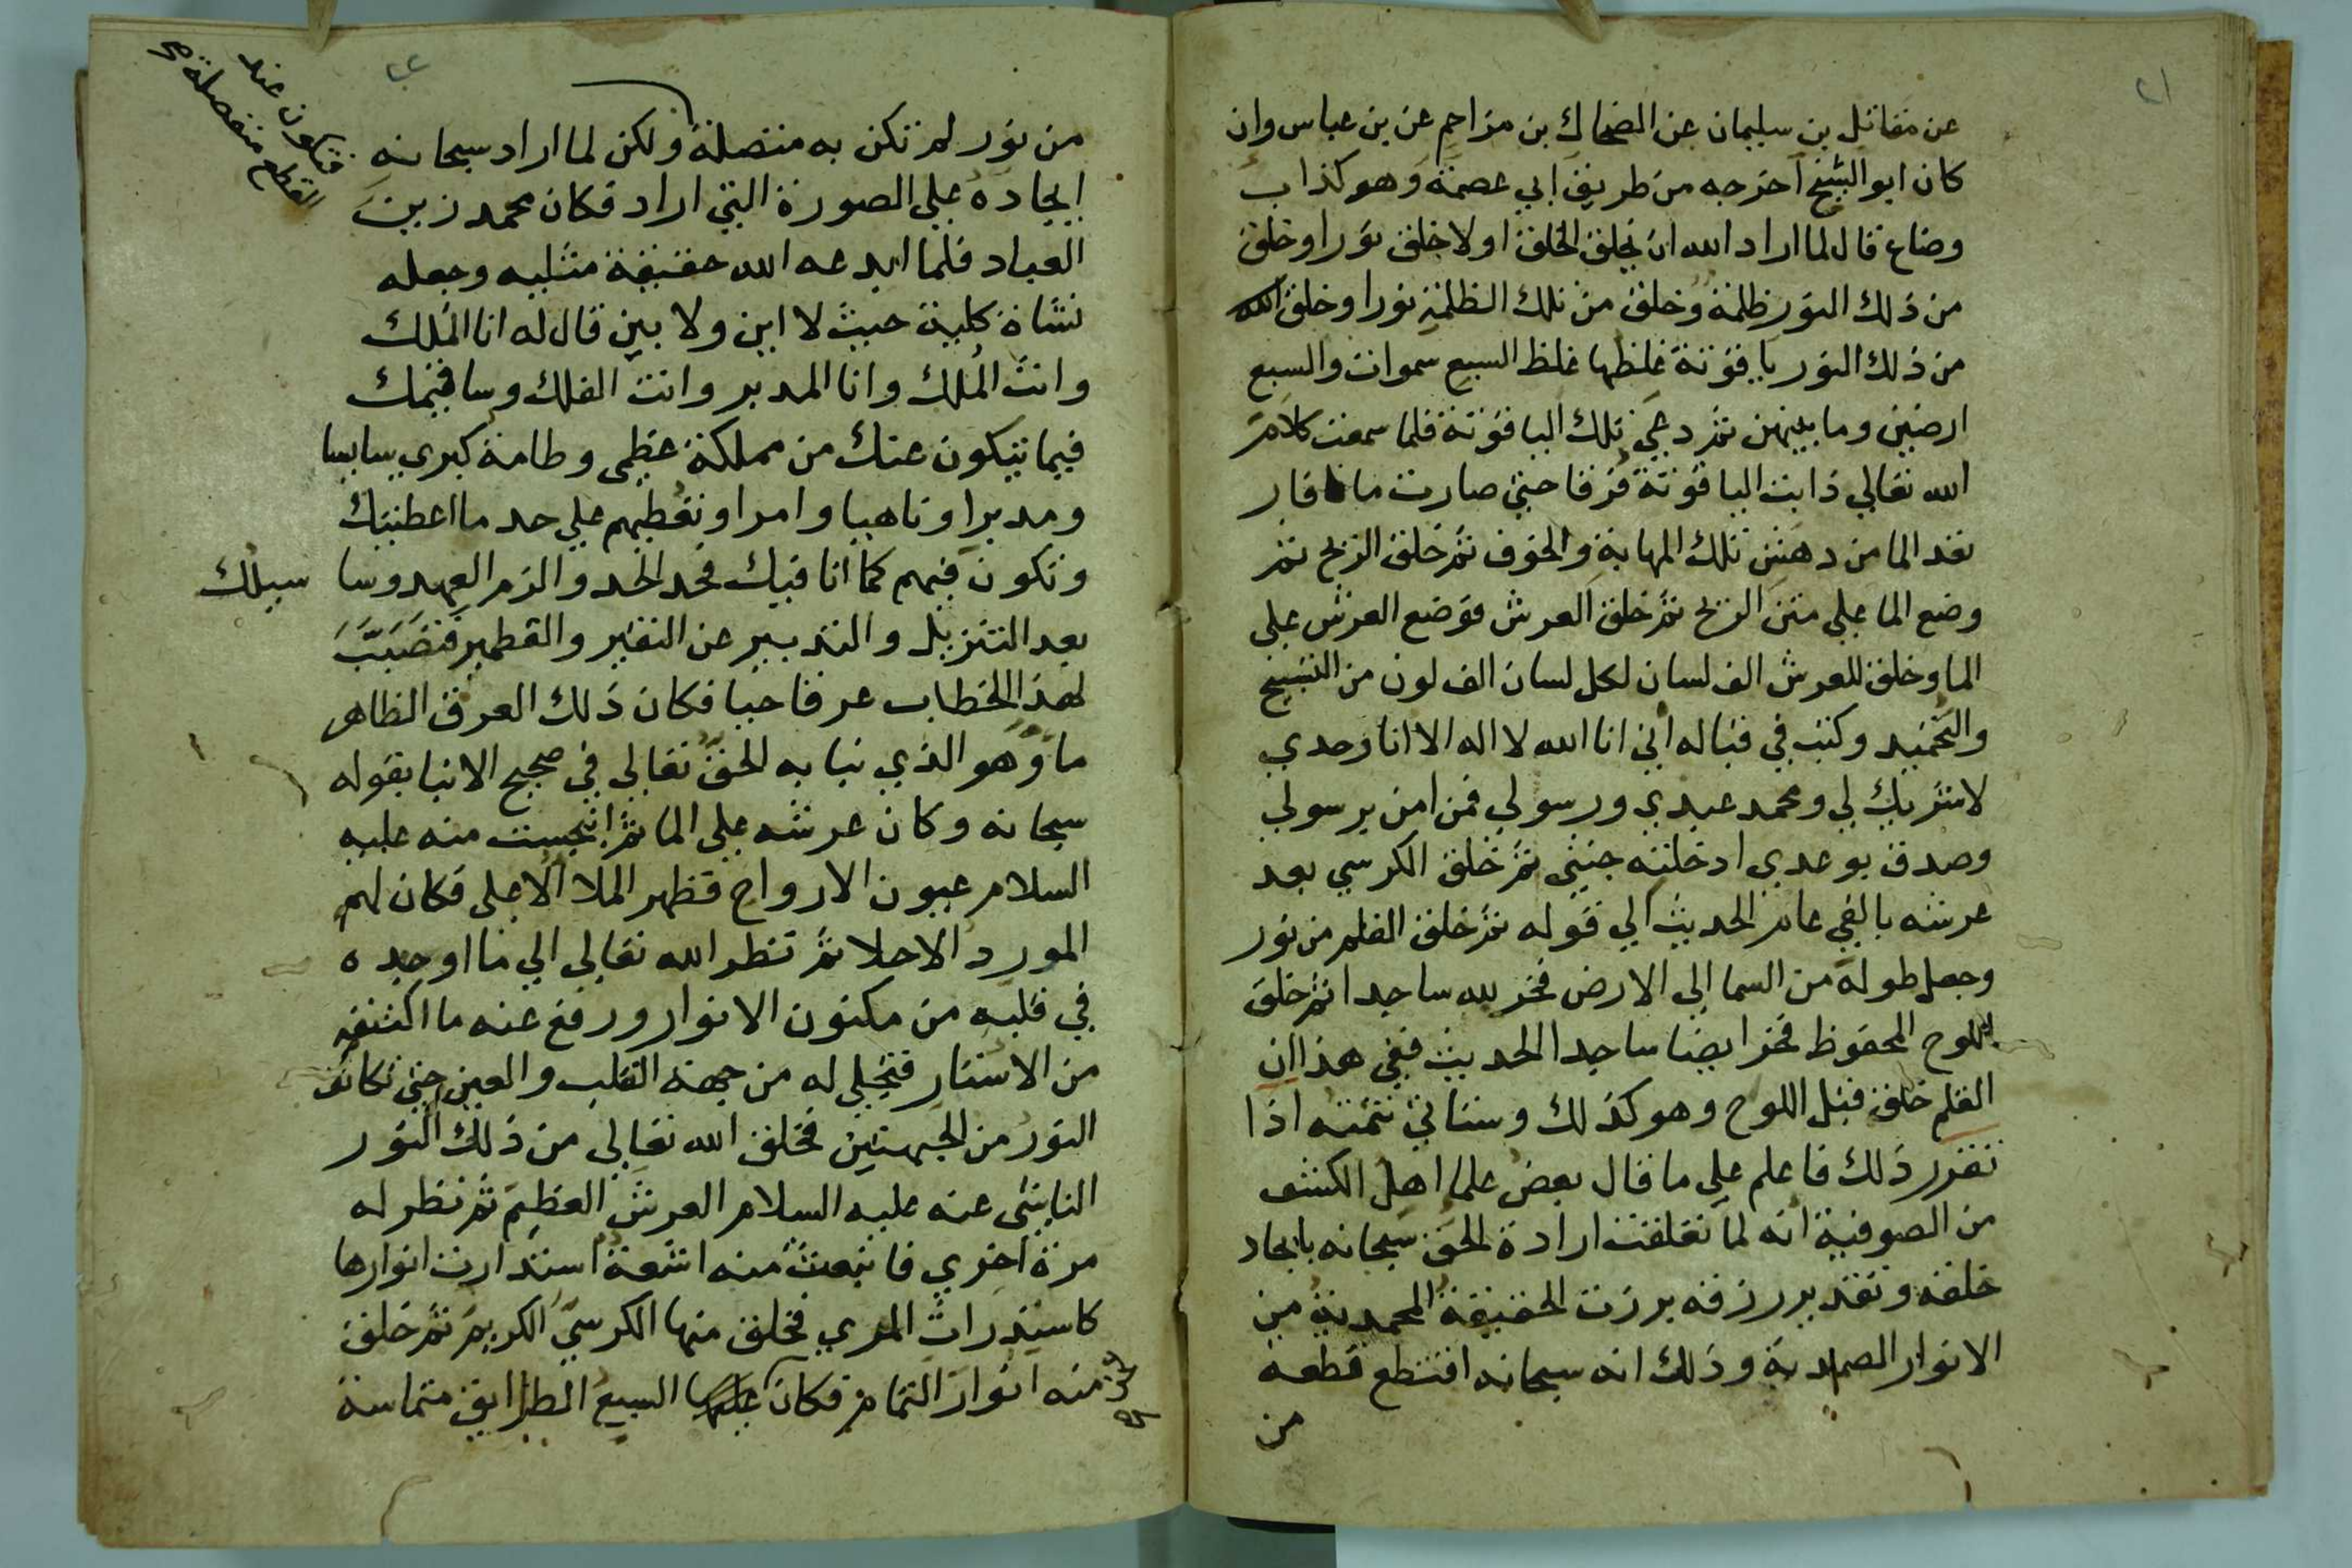 ٢١
عن مقاتل بن سليمان عن الضحاك بن مزاحم عن بن عباس وان
كان ابو الشيخ اخرجه من طريق ابي عصمة وهو كذاب
وضاع قال لما اراد الله ان يخلق الخلق اولا خلق نورا وخلق
من ذلك النور ظلمة وخلق من تلك الظلمة نورا وخلق الله
من ذلك النور ياقوتة غلظها غلظ السبع سموات والسبع
ارضين وما بينهن ثم دعي تلك الياقوتة فلما سمعت كلام
الله تعالي ذابت الياقوتة فرقا حتي صارت ما فار
من تلك المهابة والخوف ثم خلق الريح ثم
وضع الما علي متن الريح ثم خلق العرش فوضع العرش علي
الما وخلق للعرش الف لسان لكل لسان الف لون من التسبيح
والتحميد وكتب في قباله اني انا الله لا اله الا انا وحدي
لا شريك لي ومحمد عبدي ورسولي فمن امن برسولي
وصدق بوعدي ادخلته جنتي ثم خلق الكرسي بعد
عرشه بالفي عام الحديث الي قوله ثم خلق القلم من نور
وجعل طوله من السما الي الارض فخر لله ساجدا ثم خلق
اللوح المحفوظ فخر ايضا ساجد الحديث ففي هذا ان
القلم خلق قبل اللوح وهو كذلك وستاتي تتمته اذا
تقرر ذلك فاعلم علي ما قال بعض علما اهل الكشف
من الصوفية انه لما تعلقت ارادة الحق سبحانه بايجاد
خلقه وتقدير رزقه برزت الحقيقة المحمدية من
الانوار الصمدية وذلك انه سبحانه اقتطع قطعة
من
من نور لم تكن به متصلة ولكن لما اراد سبحانه
فتكون عند
القطع منفصلة صح
ايجاده علي الصورة التي اراد فكان محمد زين
العباد فلما ابدعه الله حقيقة مثليه وجعله
نشاة كلية حيث لا اين ولا بين قال له انا الملك
وانت الملك وانا المدبر وانت الفلك وساقيمك
فيما يتكون عنك من مملكة عظمي وطامة كبري سايسا
ومدبرا وناهيا وامرا وتعطيهم علي حد ما اعطيتك
وتكون فيهم كما انا فيك فحد الحد والزم العهد وسا سيلك
بعد التنزيل والتدبير عن النقير والقطمير فتصبب
لهذا الخطاب عرقا حيا فكان ذلك العرق الظاهر
ما وهو الذي نبا به الحق تعالي في صحيح الانبا بقوله
سبحانه وكان عرشه علي الما ثم انبجست منه عليه
السلام عيون الارواح فظهر الملا الاعلي فكان لهم
المورد الاحلا ثم نظر الله تعالي الي ما اوجده
في قلبه من مكنون الانوار ورفع عنه ما اكتنفه
من الاستار فتجلي له من جهة القلب والعين حتي تكاثف
النور من الجهتين فخلق الله تعالي من ذلك النور
النابئ عنه عليه السلام العرش العظيم ثم نظر له
مرة اخري فانبعث منه اشعة استدارت انوارها
كاستدرات المري فخلق منها الكرسي الكريم ثم خلق
منه انوار التمام فكان السبع الطرايق متماسة